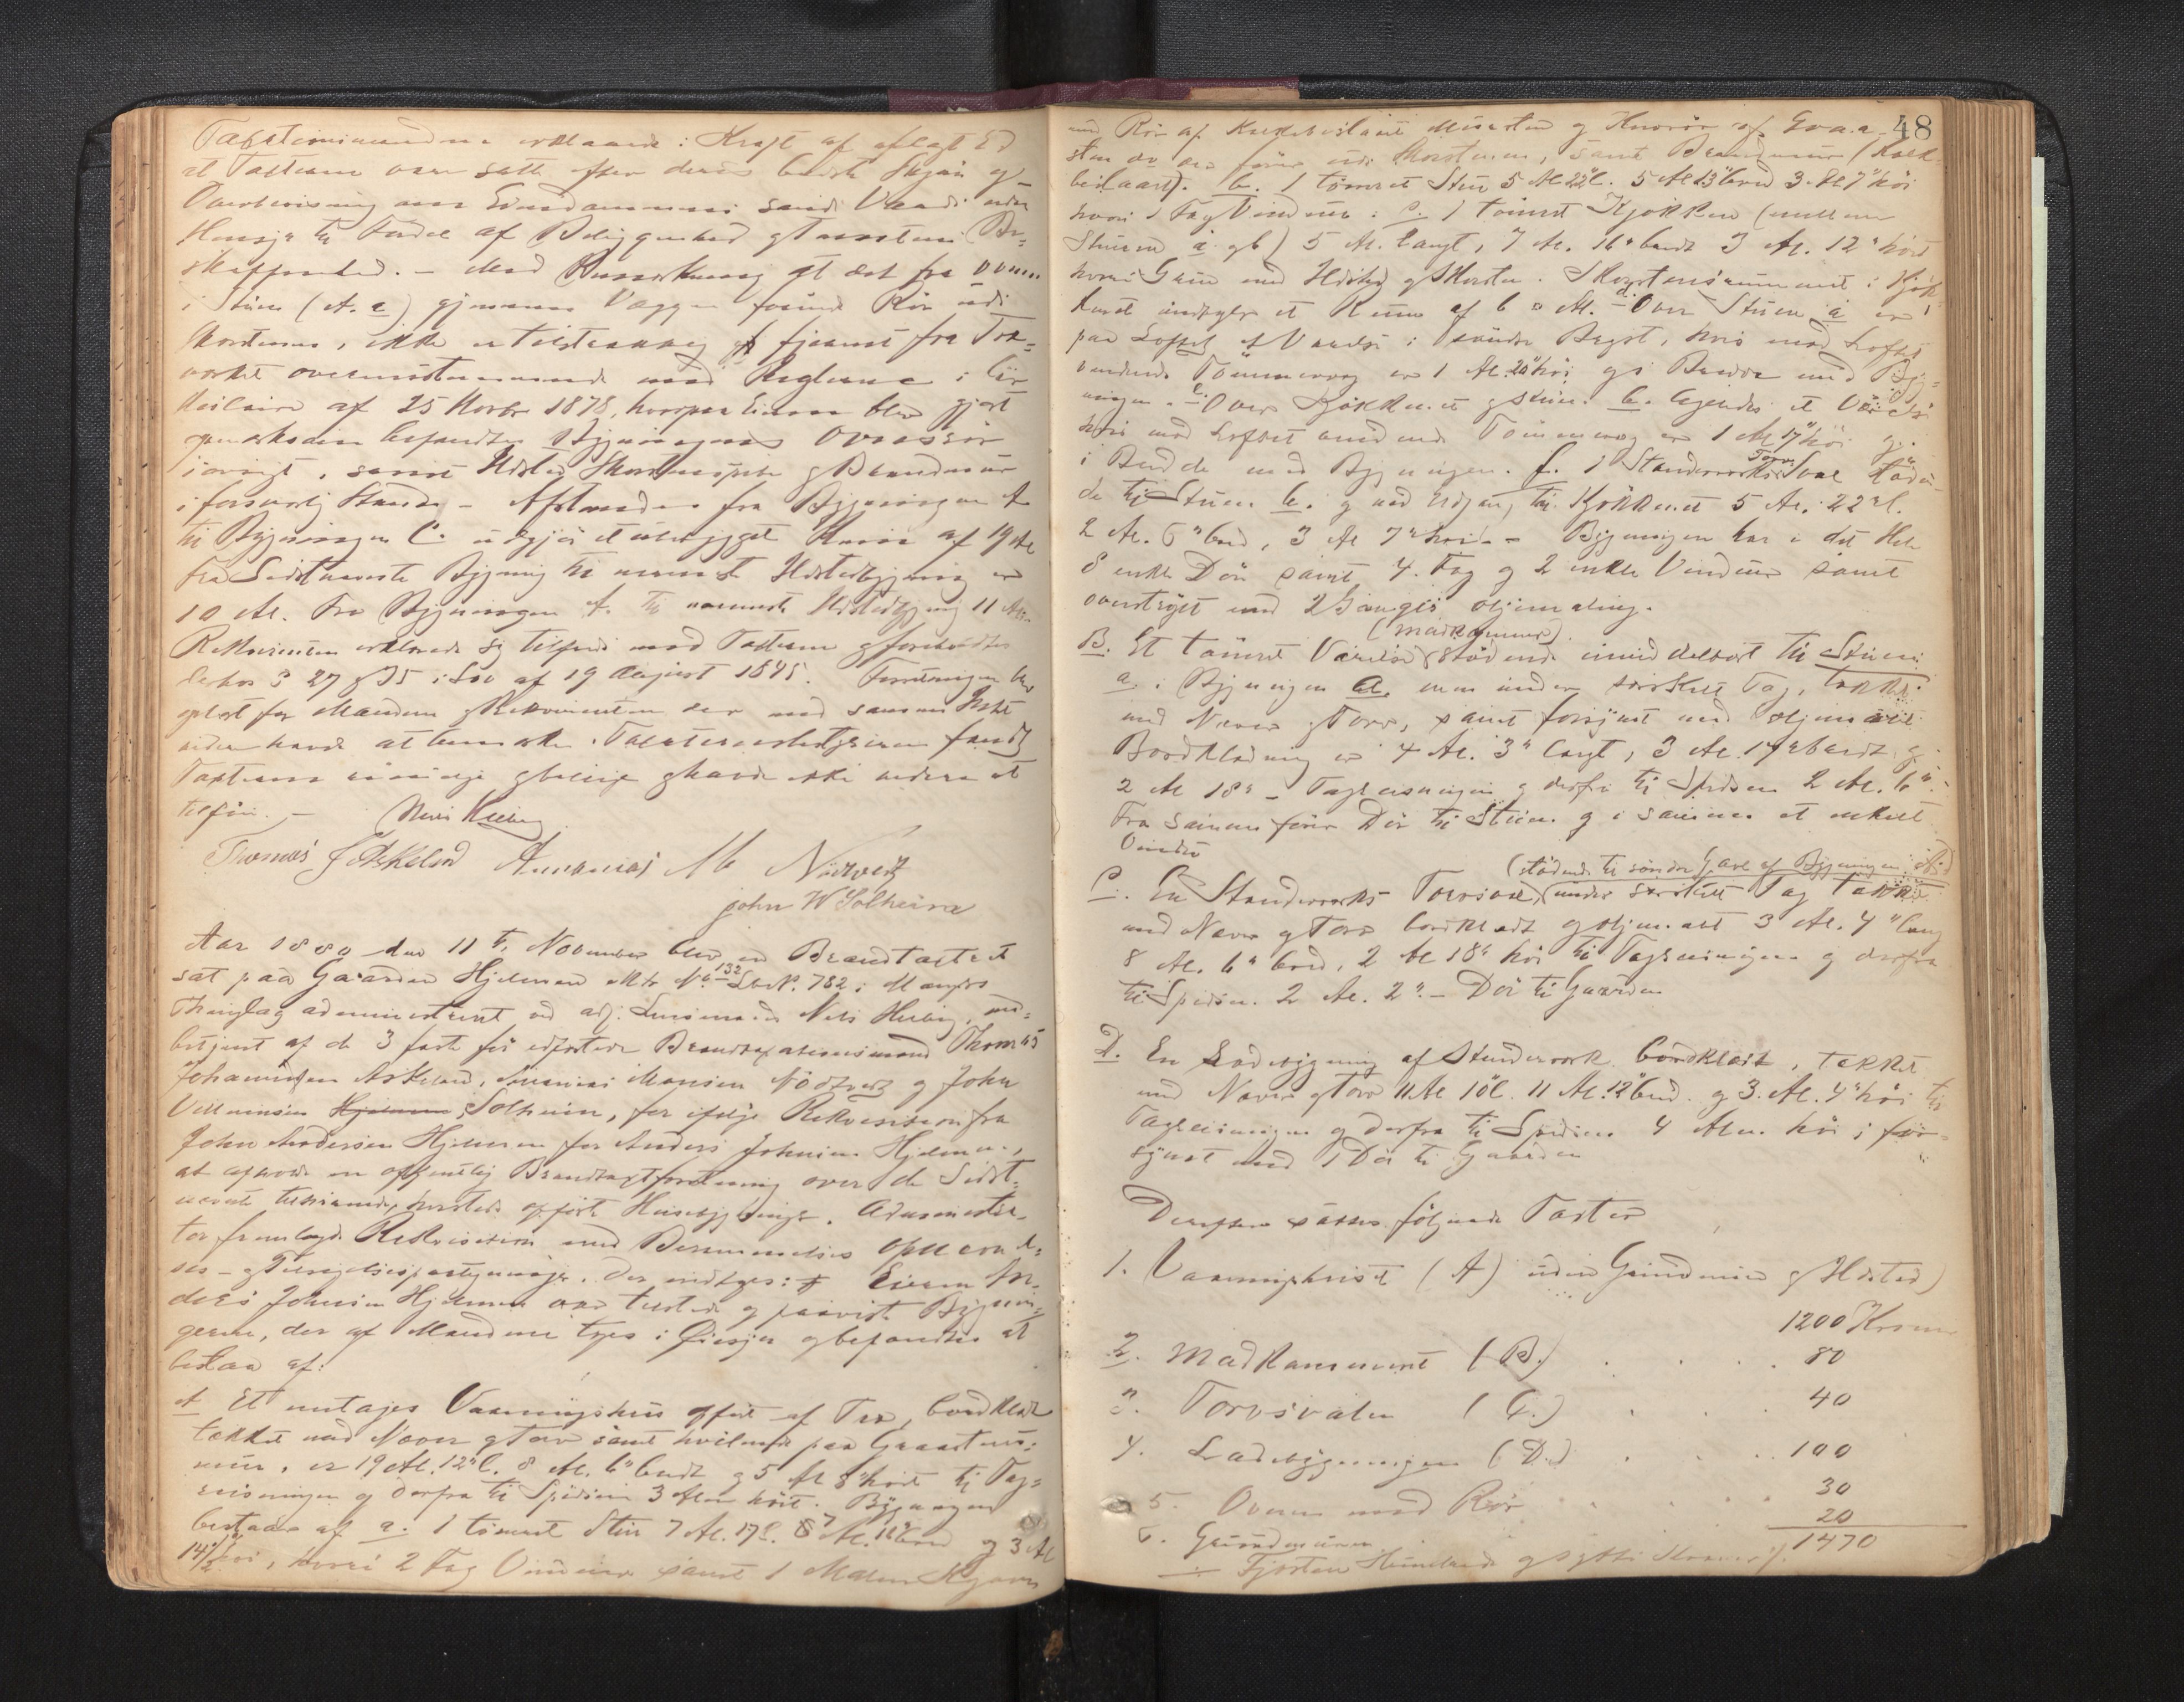 Taxationsmændene erklærede i Kraft af aflagt Ed
at Taxterne vare satte efter deres bedste Skjøn og
Overbevisning om Eiendommens sande Værdi uden
Hensyn til Fordel af Beliggenhed og Be-
skaffenhed. – Med at det fra Ovnen
i Stuen (A. a) gjennem Væggen førende Rør ud i
Skorstenen, ikke er tilstrækkelig fjernet fra Træ-
værket overensstemmende med Reglerne i Cir-
kulaire af 25 Novbr 1878, hvorpaa Eieren blev gjort
opmærksom befandtes Bygningernes
iøvrigt, samt Ildsted Skorstenspibe og Brandmur
i forsvarlig Stand. – Afstanden fra Bygningen A
til Bygningen C. udgjør et ubebygget Rum af 19 Al
Fra Sidstnævnte Bygning til nærmeste Ildstedbygning er
10 Al. Fra Bygningen A. til nærmeste Ildstedbygning 11 Al.
Rekvirenten erklærede sig tilfreds med Taxterne og foreholdtes
derhos § 27 og 35 i Lov af 19 August 1845. Forretningen blev
oplæst for Mændene og Rekvirenten der med samme Intet
videre havde at bemærke. fandt
Taxterne rimelige og billige og havde ikke videre at
tilføie. – Nils Helberg
Thomas J Askeland Ananias M Nödtvedt
John W Solheim
Aar 1880 den 11te November blev en Brandtaxtret
sat paa Gaarden Hjelmen Mtr No 132 Lb No. 762 i Mangers
Thinglag administreret ved adj. Lensmand Nils Helberg, med-
betjent af de 3 faste før edfæstede Brandtaxationsmænd Thomas
Johannessen Askeland, Ananias Monsen Nödtvedt og John
Villumsen Hjelmen Solheim, for ifølge Rekvisition fra
John Andersen Hjelmen for Anders Johnsen Hjelmen,
at afholde en offentlig Brandtaxtforretning over de Sidst-
nævnte tilhørende, hersteds opførte Huusbygninger. Administra-
tor fremlagde Rekvisition med Berammelses
og Tilsigelsespaategninger. Der indtages: Eieren An-
ders Johnsen Hjelmen var tilstede og paaviste Bygnin-
gerne, der af Mændene toges i Øiesyn og befandtes at
bestaa af:
A Et enetages Vaaningshus opført af Træ, bordklædt
tækket med Næver og Torv samt hvilende paa Graasteens-
muur, er 19 Al. 12" l. 8 Al. 6" bredt og 5 Al 8" høit til Tag-
reisningen og derfra til Spidsen 3 Alen høit. Bygningen
bestaar af a. 1 tømret Stue 7 Al. 17" l. 7 Al. 12" bred og 3 Al
14½" høi, hvori 2 Fag Vinduer samt 1
48
med Rør af
sten der fører ud i Skorstenen, samt Brandmuur (Kalk-
beslaaet). b. 1 tømret Stue 5 Al 22" l. 5 Al 23" bred 3 Al 7" høi
hvori 1 Fag Vindue. c. 1 tømret Kjøkken (mellem
Stuerne a og b) 5 Al. langt, 7 Al. 16" bredt 3 Al. 12" høit
hvori Grue med Ildsted og Skorsten. Skorstensrummet i Kjøk-
kenet indtager et Rum af 6 □ Al. d. Over Stuen a er
paa Loftet et Værelse i søndre hvis mod Loftet
vendende Tømmervæg er 1 Al. 20" høi og i Bredde med Byg-
ningen. e. Over Kjøkkenet og Stuen b. ligesaa et Værelse
hvis mod Loftet vendende Tømmervæg er 1 Al 17" høi og
i Bredde med Bygningen. f. 1 Standerværks Torv Sval stöden-
de til Stuen b. og med Udgang til Kjøkkenet 5 Al. 22" l.
2 Al. 6" bred, 3 Al 7" høi. – Bygningen har i det Hele
8 enkle Dør samt 4 Fag og 2 enkle Vinduer samt
overstrøget med 2 Ganges oljemaling.
(Madkammer).
B. Et tömret Værelse stödende umiddelbart til Stuen
a i Bygningen A. men under særskilt Tag, tækket
med Næver og Torv, samt forsynet med oljemalt
Bordklædning er 4 Al. 3" langt, 3 Al. 14" bredt og
2 Al 18" – Tagreisningen og derfra til Spidsen 2 Al. 6".
Fra samme fører Dør til Stuen og i samme et enkelt
Vindue
(stödende til søndre Gavl af Bygningen A)
C. En Standerværks Torvsval, under særskilt Tag tækket
med Næver og Torv bordklædt og oljemalt 3 Al. 4" lang
8 Al. 6" bred, 2 Al 18" høi til Tagreisningen og derfra
til Spidsen 2 Al. 2". – Dør til Gaarden
D. En Ladebygning af Standerværk bordklædt, tækket
med Næver og Torv 11 Al 10" l. 11 Al. 12" bred og 3. Al. 4" høi til
Tagreisningen og derfra til Spidsen 4 Alen høi, for-
synet med 1 Dør til Gaarden
Derefter sattes følgende Taxter
1. Vaaningshuset (A) uden Grundmuur og Ildsted
1200 Kroner
2. Madkammeret (B.) . . . . 80
3. Torvsvalen (C.) . . . 40
4. Ladebygningen (D.) . . . 100
5. Ovnen med Rør . . . 30
6. Grundmuren 20
1470
Fjorten Hundrede og sytti Kroner